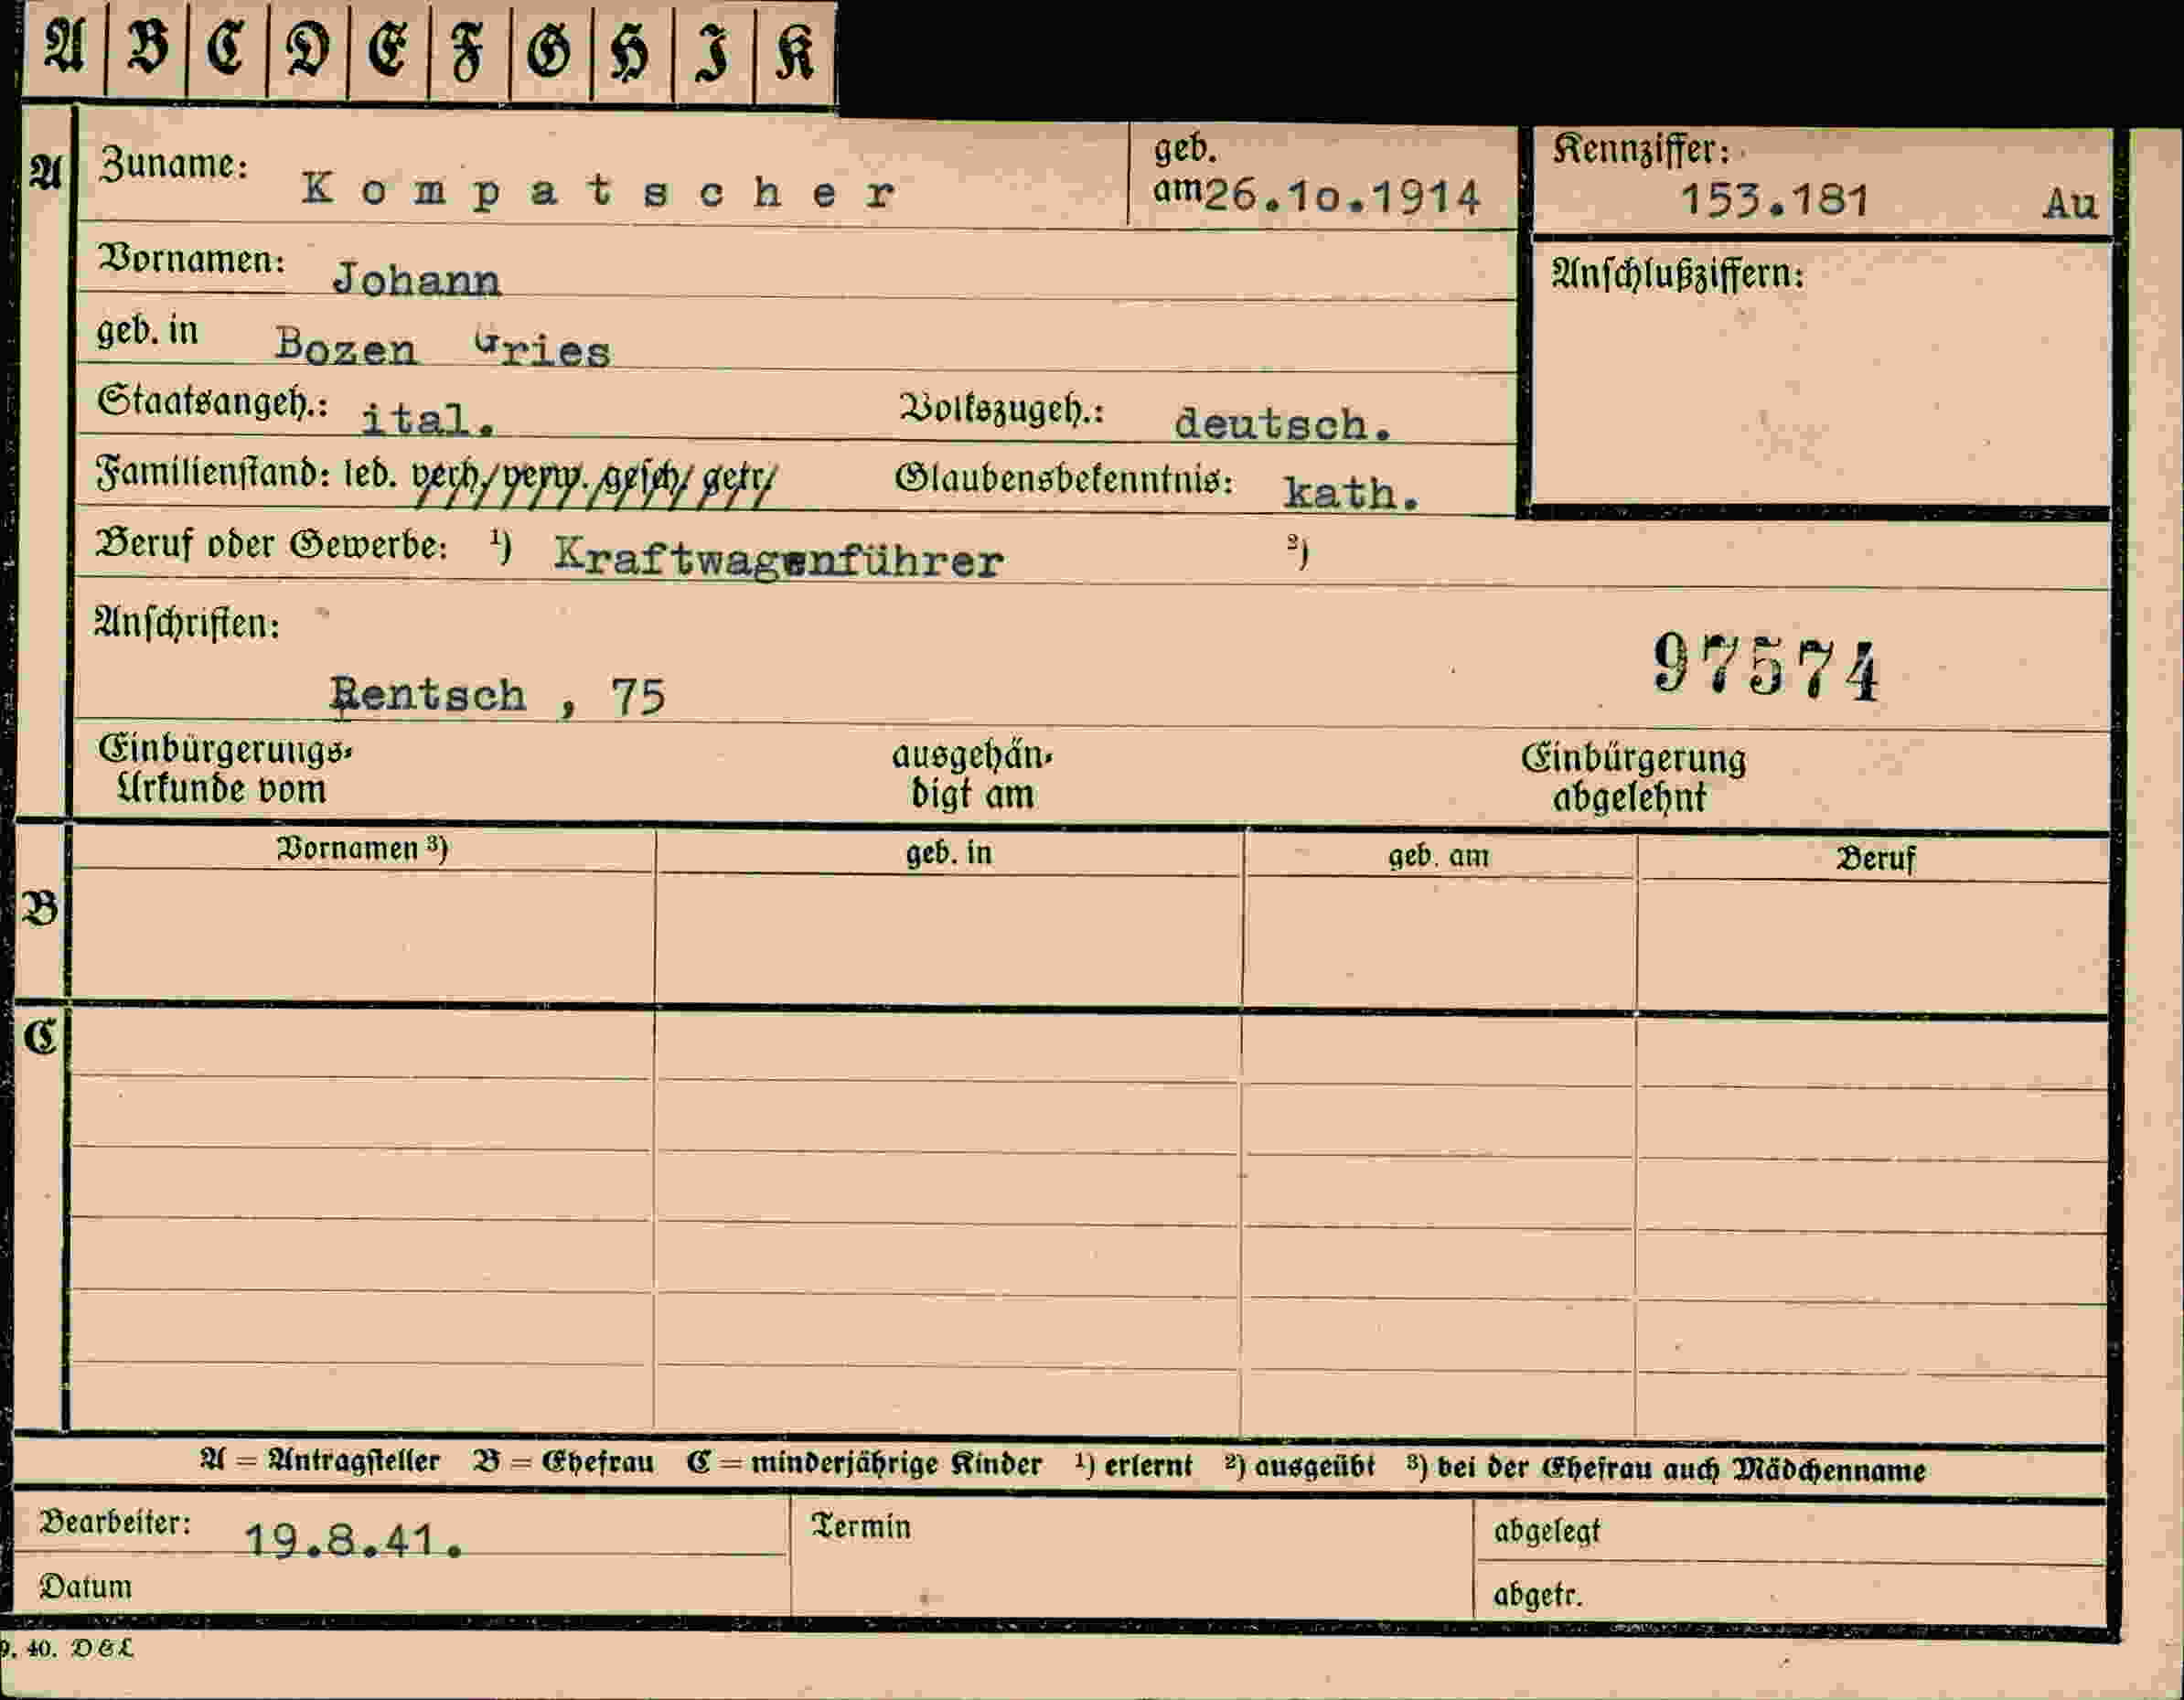 A B C D E F G H I K
A Zuname: Kompatscher geb. am 26.10.1914 Kennziffer: 153.181 Au
Vornamen: Johann Anschlußziffern:
geb. in Bozen Gries
Staatsangeh.: ital. Volkszugeh.: deutsch.
Familienstand: led. verh. verw. gesch. getr. Glaubensbekenntnis: kath.
Beruf oder Gewerbe: ¹) Kraftwagenführer ²)
Anschriften: 97574
Rentsch , 75
Einbürgerungs- ausgehän- Einbürgerung
Urkunde vom digt am abgelehnt
Vornamen ³) geb. in geb. am Beruf
B
C
A = Antragsteller B = Ehefrau C = minderjährige Kinder ¹) erlernt ²) ausgeübt ³) bei der Ehefrau auch Mädchenname
Bearbeiter: 19.8.41. Termin abgelegt
Datum abgetr.
9. 40. D&L